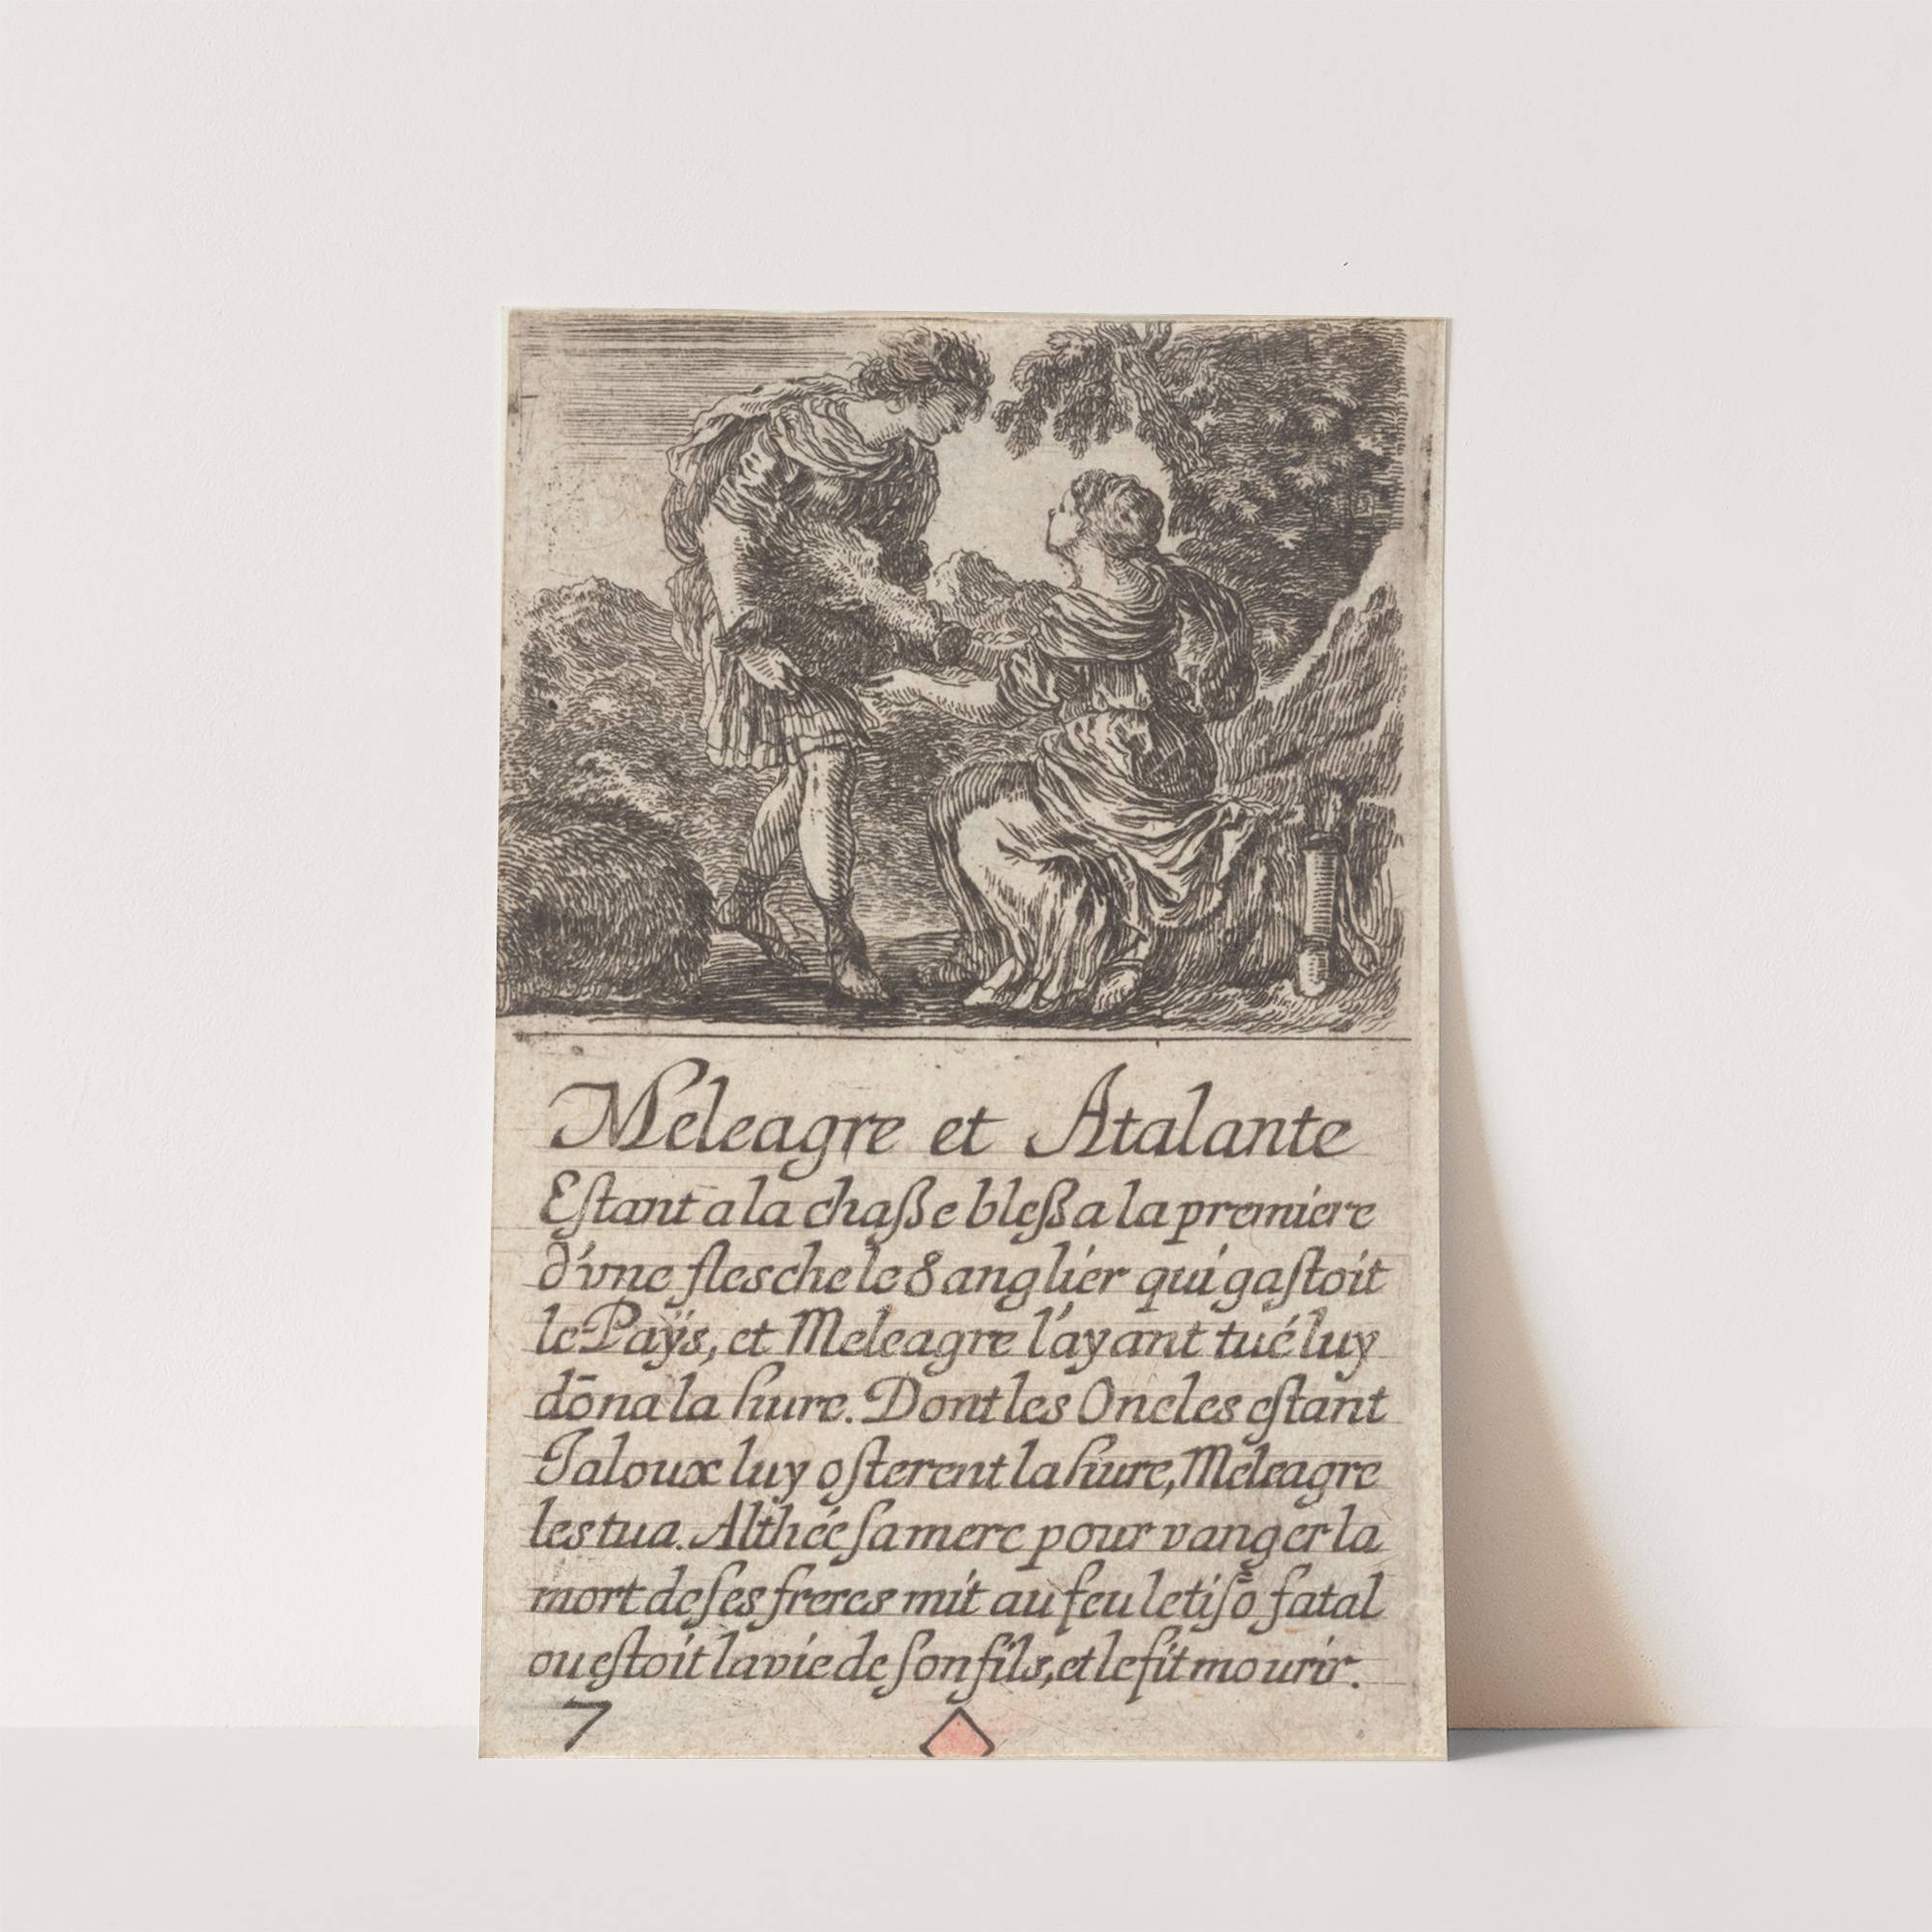 Meleagre et Atalante
Eſtant a la chaſſe bleſſa la premiere
d'vne flesche le Sanglier qui gaſtoit
le Paÿs, et Meleagre l'ayant tué luy
dōna la hure. Dont les Oncles eſtant
Jaloux luy oſterent la hure, Meleagre
les tua. Althée ſa mere pour vanger la
mort de ſes freres mit au feu le tiſō fatal
ou eſtoit la vie de ſon fils, et le fit mourir.
7